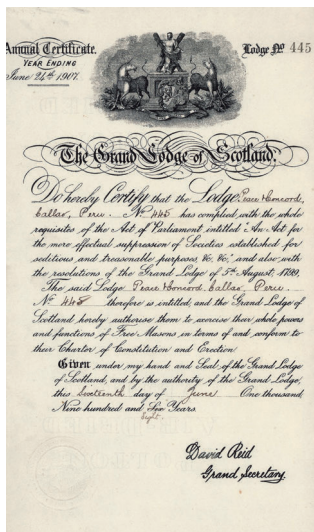 Annual Certificate.
Lodge No 445
YEAR ENDING
June 24th 1907.
The Grand Lodge of Scotland.
Do hereby Certify that the Lodge Peace & Concord,
Callao, Peru. No 445 has complied with the whole
requisites of the Act of Parliament entitled "An Act for
the more effectual suppression of Societies established for
seditious and treasonable purposes &c. &c." and also with
the resolutions of the Grand Lodge of 5th August, 1799.
The said Lodge Peace & Concord, Callao, Peru.
No 445 therefore is entitled, and the Grand Lodge of
Scotland hereby authorise them to exercise their whole powers
and functions of Free Masons in terms of and conform to
their Charter of Constitution and Erection.
Given under my hand and Seal of the Grand Lodge
of Scotland, and by the authority of the Grand Lodge,
this Sixteenth day of June One thousand
Nine hundred and Six Years.
Eight
David Reid
Grand Secretary.